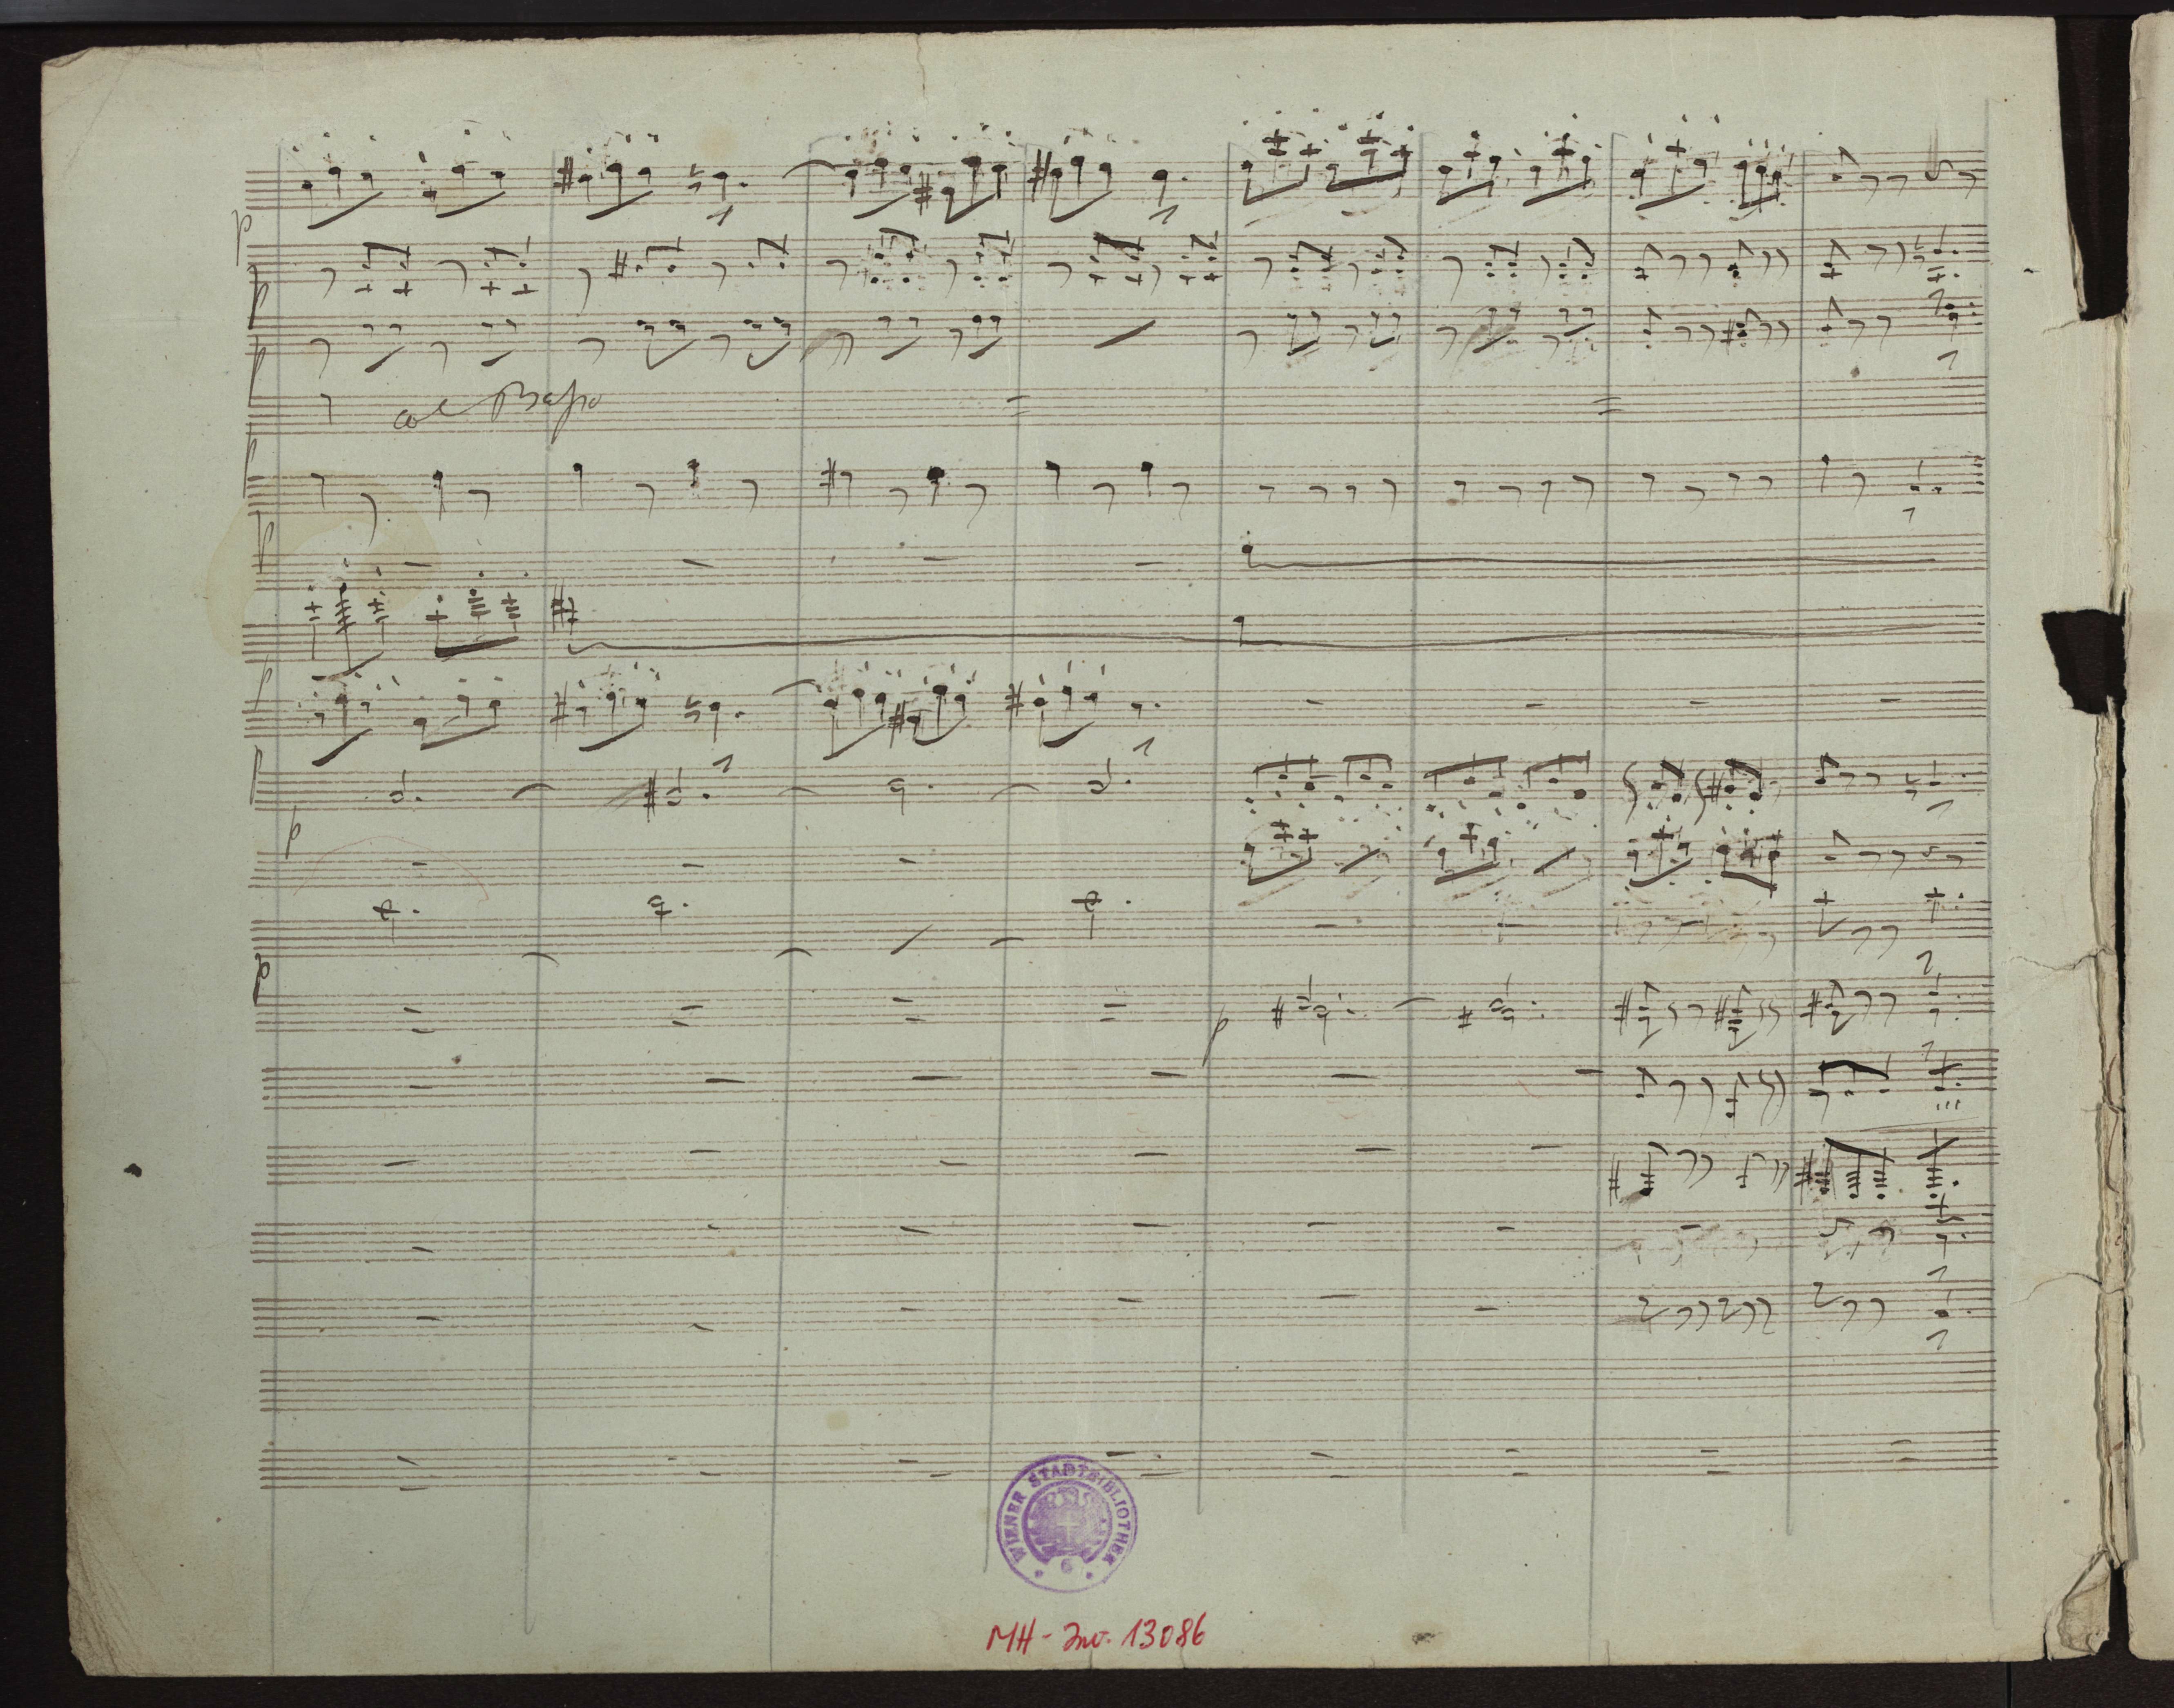 p
p
p
col Basso
p
p
p
p
p
p
WIENER STADTBIBLIOTHEK
MH - Inv. 13086